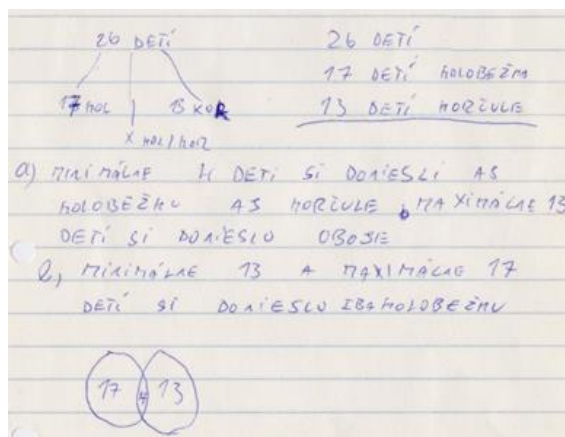 26 DETÍ
26 DETÍ
17 DETÍ KOLOBEŽKA
17 KOL
13 KOR
13 DETÍ KORČULE
X KOL/KOR
a) MINIMÁLNE 4 DETI SI DONIESLI AJ
KOLOBEŽKU AJ KORČULE, MAXIMÁLNE 13
DETÍ SI DONIESLO OBOJE
b, MINIMÁLNE 13 A MAXIMÁLNE 17
DETÍ SI DONIESLO IBA KOLOBEŽKU
17 4 13